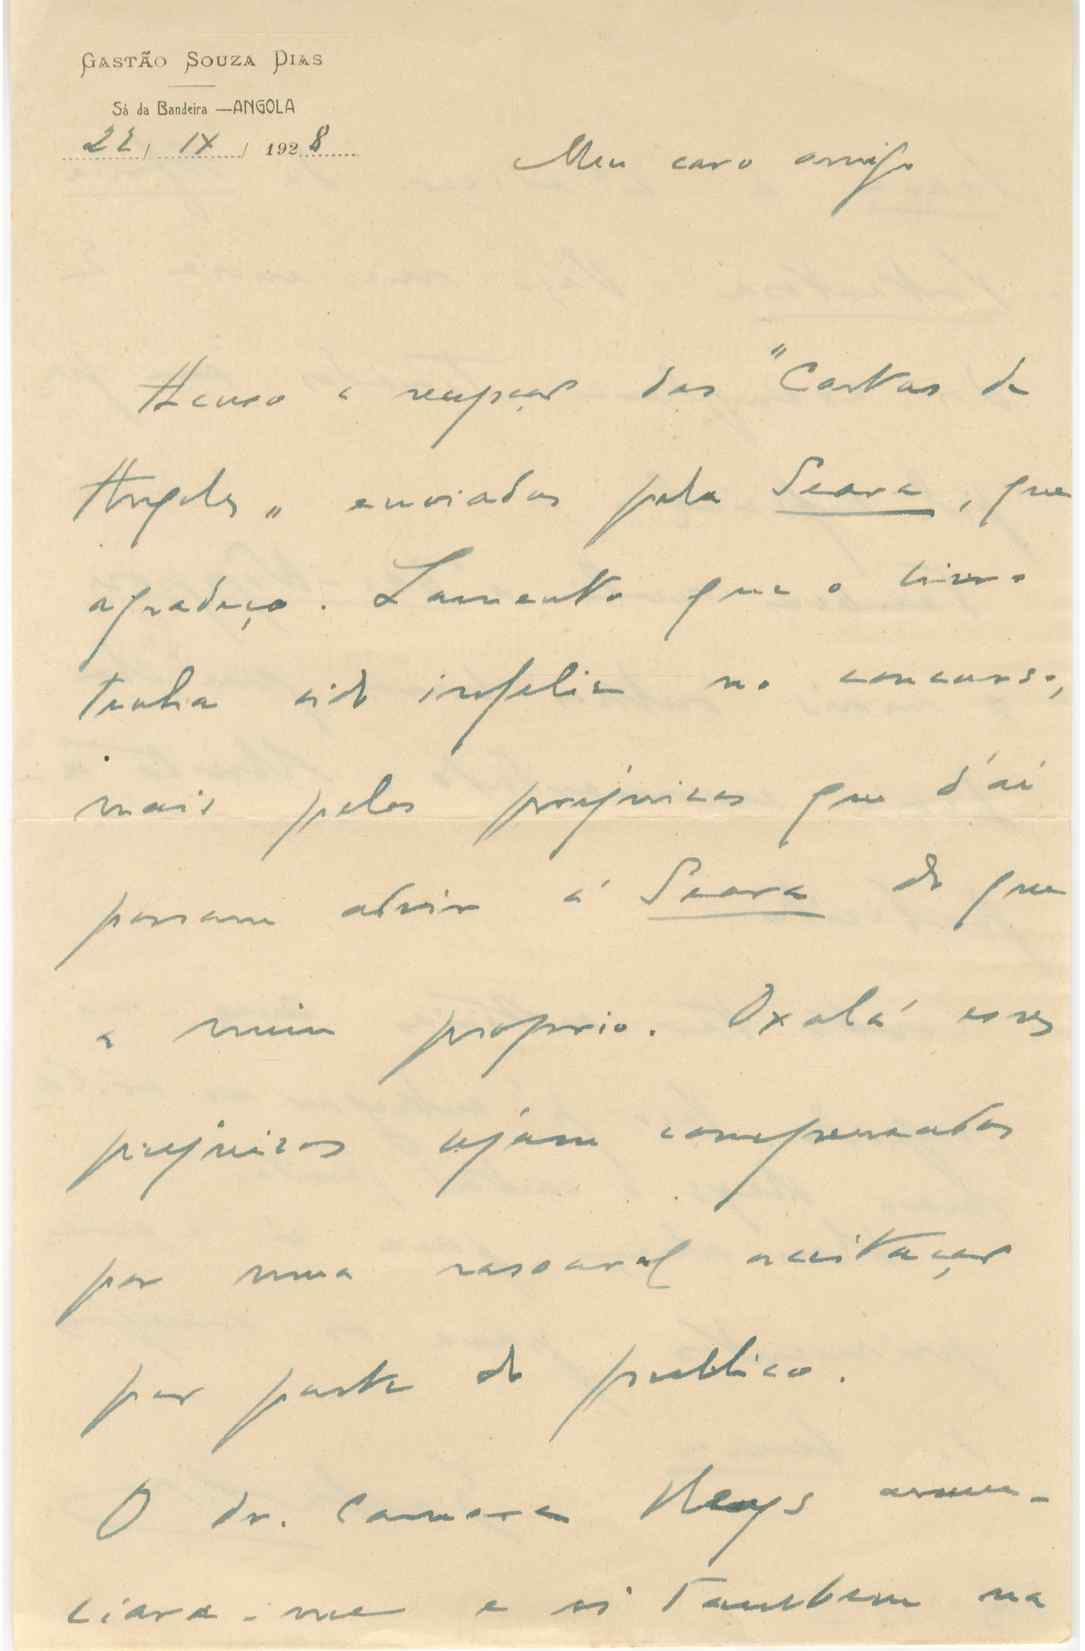 GASTÃO SOUZA DIAS
Sá da Bandeira — ANGOLA
22 / IX / 1928
Meu caro amigo
Acuso a recepção das "Cartas de
Angola„ enviadas pela Seara, que
agradeço. Lamento que o livro
tenha sido infeliz no concurso,
mais pelos prejuizos que d'aí
possam advir á Seara do que
a mim proprio. Oxalá esses
prejuizos sejam compensados
por uma rasoavel aceitação
por parte do publico.
O dr. Camara Reys anun-
ciara-me e vi tambem na